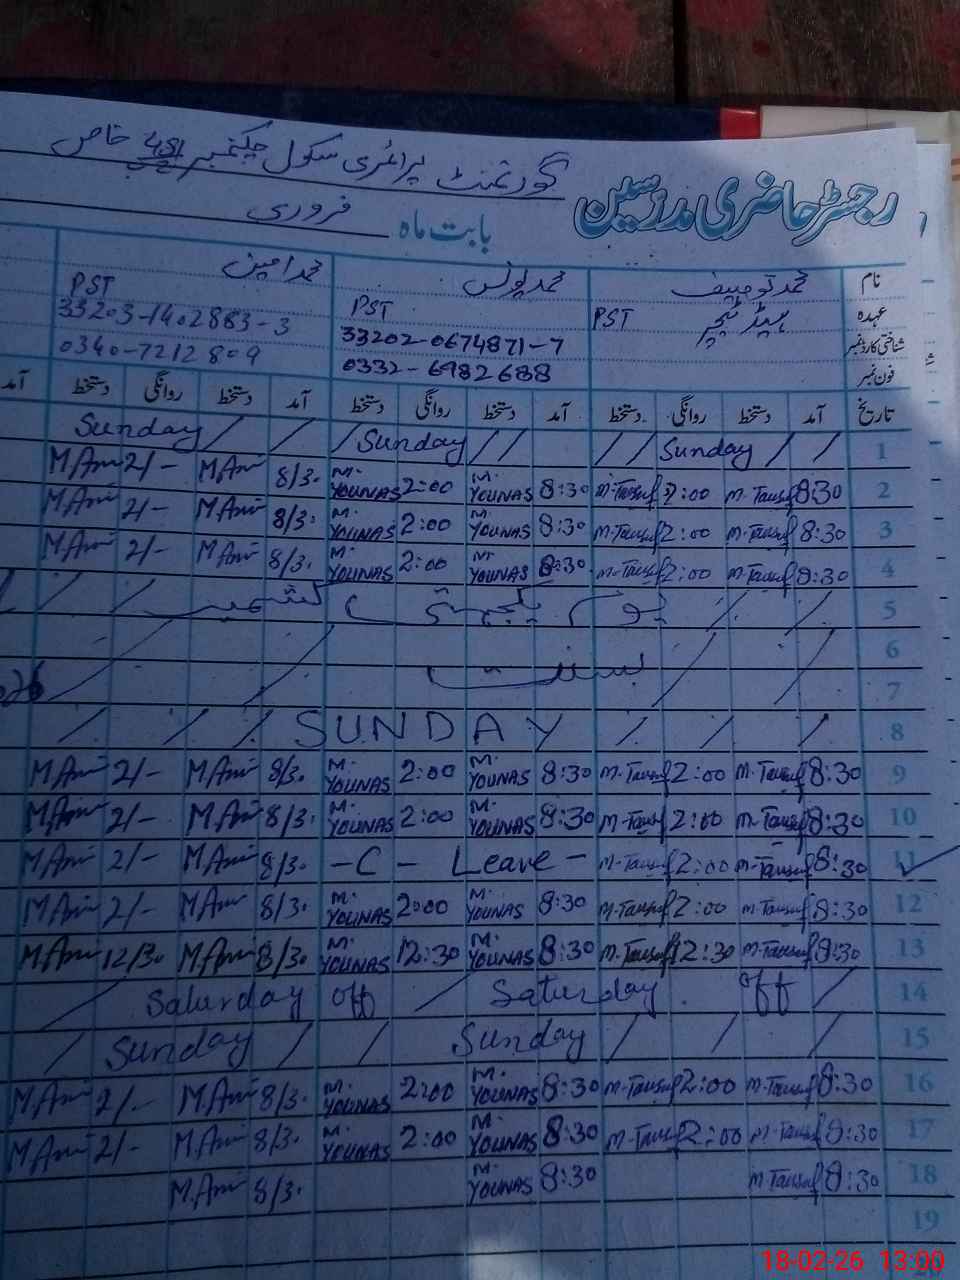 گورنمنٹ پرائمری سکول چکنمبر 481 خاص
رجسٹر حاضری مدرسین
بابت ماہ فروری
نام محمد توصیف محمد یونس محمد امین
عہدہ ہیڈ ٹیچر PST PST PST
شناختی کارڈ نمبر 33202-0674871-7 33203-1402883-3
فون نمبر 0332-6982688 0340-7212809
تاریخ آمد دستخط روانگی دستخط آمد دستخط روانگی دستخط آمد دستخط روانگی دستخط آمد
1 / / Sunday / / / / Sunday / / / Sunday
2 8:30 M.Tausuf 2:00 M.Tausuf 8:30 M.YOUNAS 2:00 M.YOUNAS 8/30 M.Ami 2/- M.Ami
3 8:30 M.Tausuf 2:00 M.Tausuf 8:30 M.YOUNAS 2:00 M.YOUNAS 8/30 M.Ami 2/- M.Ami
4 8:30 M.Tausuf 2:00 M.Tausuf 8:30 M.YOUNAS 2:00 M.YOUNAS 8/30 M.Ami 2/- M.Ami
5 / / یوم یکجہتی کشمیر / /
6
7
8 / / / SUNDAY / / /
9 8:30 M.Tausuf 2:00 M.Tausuf 8:30 M.YOUNAS 2:00 M.YOUNAS 8/30 M.Ami 2/- M.Ami
10 8:30 M.Tausuf 2:00 M.Tausuf 8:30 M.YOUNAS 2:00 M.YOUNAS 8/30 M.Ami 2/- M.Ami
11 8:30 M.Tausuf 2:00 M.Tausuf - C - Leave - 8/30 M.Ami 2/- M.Ami
12 8:30 M.Tausuf 2:00 M.Tausuf 8:30 M.YOUNAS 2:00 M.YOUNAS 8/30 M.Ami 2/- M.Ami
13 8:30 M.Tausuf 12:30 M.Tausuf 8:30 M.YOUNAS 12:30 M.YOUNAS 8/30 M.Ami 12/30 M.Ami
14 / Saturday off / Saturday off /
15 / Sunday / / Sunday / / /
16 8:30 M.Tausuf 2:00 M.Tausuf 8:30 M.YOUNAS 2:00 M.YOUNAS 8/30 M.Ami 2/- M.Ami
17 8:30 M.Tausuf 2:00 M.Tausuf 8:30 M.YOUNAS 2:00 M.YOUNAS 8/30 M.Ami 2/- M.Ami
18 8:30 M.Tausuf 8:30 M.YOUNAS 8/30 M.Ami
19
18-02-26 13:00